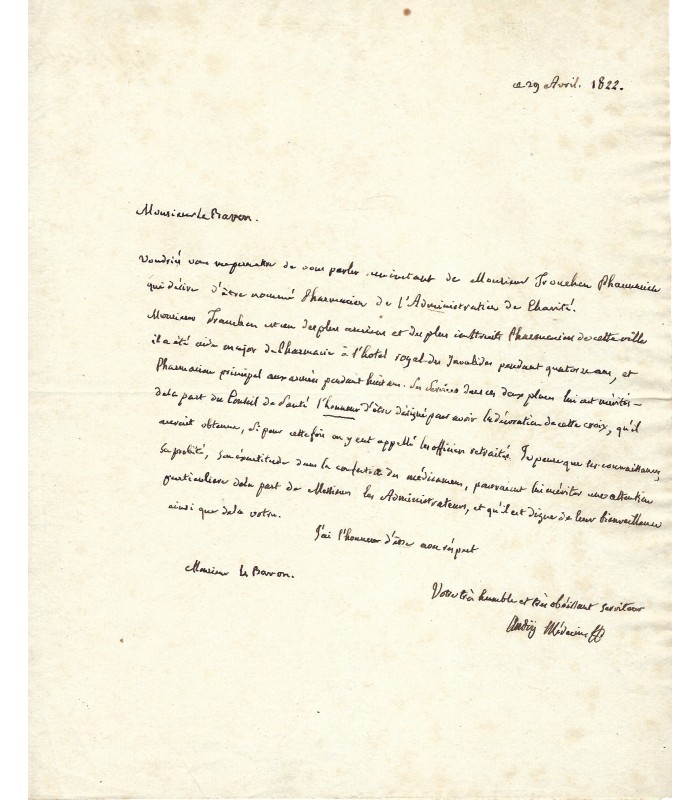 ce 29 Avril. 1822.
Monsieur Le Baron.
Voudriés vous me permettre de vous parler un instant de Monsieur Pharmacien
qui désire d'être nommé Pharmacien de L'Administration de Charité.
Monsieur est un des plus anciens et des plus instruits Pharmaciens de cette ville
il a été aide major de Pharmacie à l'hotel royal des Invalides pendant quatorze ans, et
Pharmacien principal aux armées pendant huit ans. Ses Services dans ces deux places lui ont mérités
de la part du Conseil de Santé l'honneur d'être désigné pour avoir la décoration de cette croix, qu'il
aurait obtenue, si pour cette fois on y eut appellé les officiers retraités. Je pense que ses connaissances,
sa probité, son exactitude dans la des médicamens, pourraient lui mériter une attention
particuliere de la part de Messieurs les Administrateurs, et qu'il est digne de leur bienveillance
ainsi que de la votre.
J'ai l'honneur d'être avec réspect
Monsieur Le Baron.
Votre très humble et très obéissant serviteur
Andry Médecin